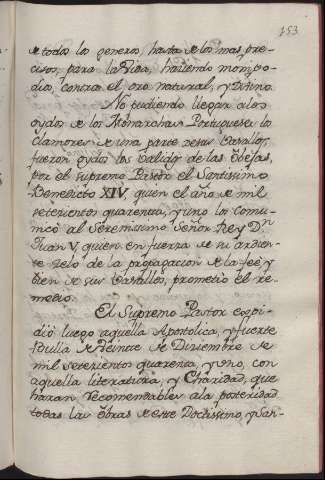 153
de todos los generos, hasta de los mas pre-
cisos, para la Vida, haziendo monipo-
dio, contra el oro natural, y Divino.
No pudiendo llegar alos
oydos de los Monarchas Portugueses los
clamores de una parte de sus Vasallos,
fueron oydos los Validos de las Obejas,
por el supremo Pastor el Santissimo
Benedicto XIV, quien el año de mil
setezientos quarenta, y uno los Comu-
nicó al Serenissimo Señor Rey Dn
Juan V, quien en fuerza de su ardien-
te Zelo de la propagacion de la feè y
bien de sus Vasallos, prometiò el re-
medio.
El Supremo Pastor expi-
diò luego aquella Apostolica, y fuerte
Bulla de Veinte de Diziembre de
mil setezientos quarenta, y uno, con
aquella literatura, y Charidad, que
haran recomendables ala posteridad
todas las obras de este Doctissimo, y San-